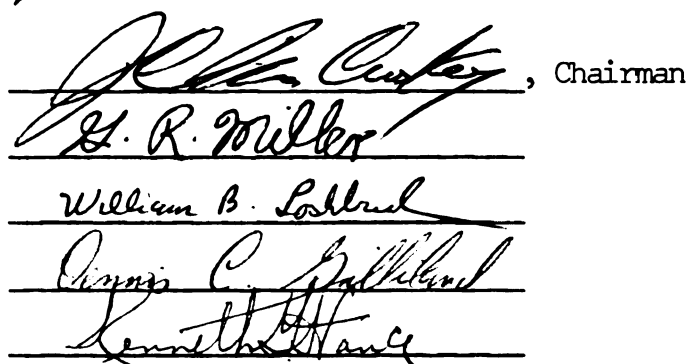 J. Allan Curtey, Chairman
G. R. Miller
William B. Lashbrook
Dennis C. Gilliland
Kenneth G. Hance